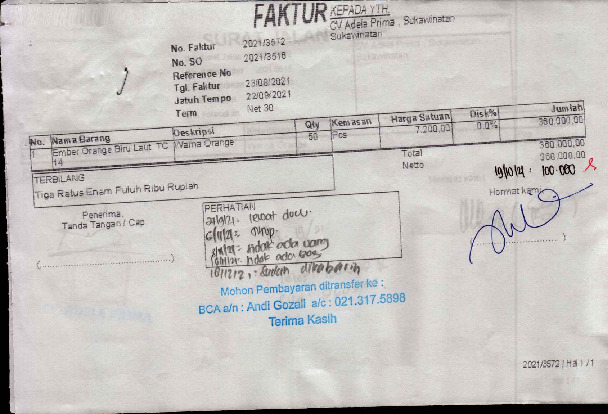 FAKTUR
KEPADA YTH.
CV Adela Prima , Sukawinatan
Sukawinatan
No. Faktur 2021/3572
No. SO 2021/3516
Reference No
Tgl. Faktur 23/08/2021
Jatuh Tempo 22/09/2021
Term Net 30
No. Nama Barang Deskripsi Qty Kemasan Harga Satuan Disk% Jumlah
1 Ember Orange Biru Laut TC Warna Orange 50 Pcs 7.200,00 0.0% 360.000,00
14
Total 360.000,00
Netto 360.000,00
TERBILANG
Tiga Ratus Enam Puluh Ribu Rupiah
19/10/21 : 100.000
Hormat kami,
Penerima,
Tanda Tangan / Cap
PERHATIAN
lewat dou.
tidak ada uang
tidak ada bos
sudah dikabarin
Mohon Pembayaran ditransfer ke :
BCA a/n : Andi Gozali a/c : 021.317.5898
Terima Kasih
2021/3572 | Hal 1 / 1